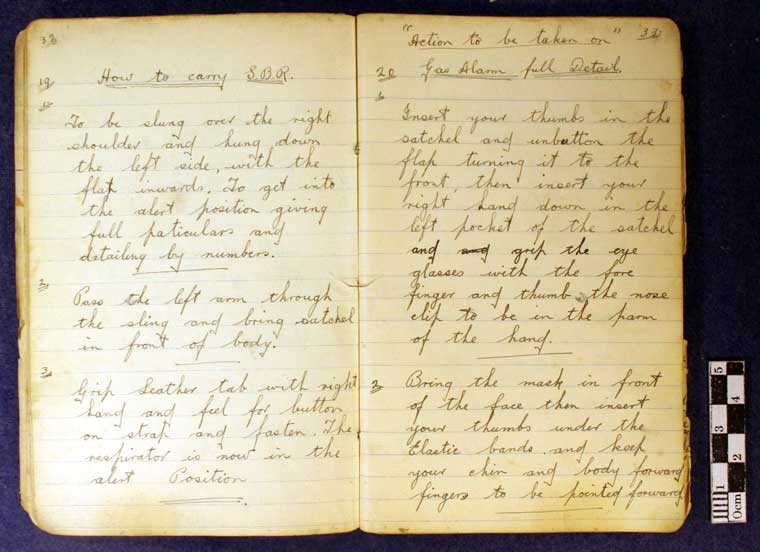 33
19 How to carry S.B.R.
1. To be slung over the right
shoulder and hung down
the left side, with the
flap inwards. To get into
the alert position giving
full paticulars and
detailing by numbers.
2. Pass the left arm through
the sling and bring satchel
in front of body.
3. Grip Leather tab with right
hand and feel for button
on strap and fasten. The
respirator is now in the
alert Position
"Action to be taken on" 33
20 Gas Alarm full Detail.
1. Insert your thumbs in the
satchel and unbutton the
flap turning it to the
front, then insert your
right hand down in the
left pocket of the satchel
and and grip the eye
glasses with the fore
finger and thumb the nose
clip to be in the parm
of the hand.
2 Bring the mask in front
of the face then insert
your thumbs under the
Elastic bands. and keep
your chin and body forward
fingers to be pointed forward
0cm 1 2 3 4 5